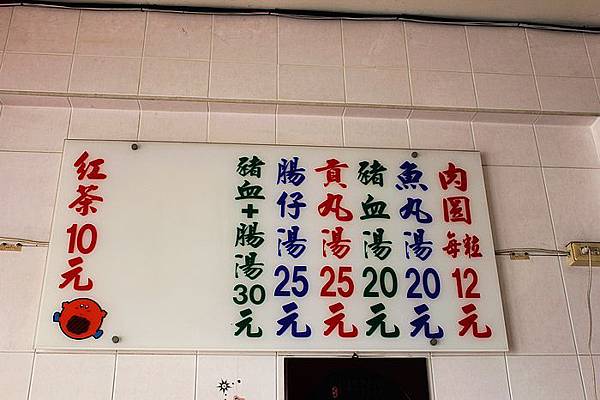 肉圓每粒12元
魚丸湯20元
豬血湯20元
貢丸湯25元
腸仔湯25元
豬血+腸湯30元
紅茶10元